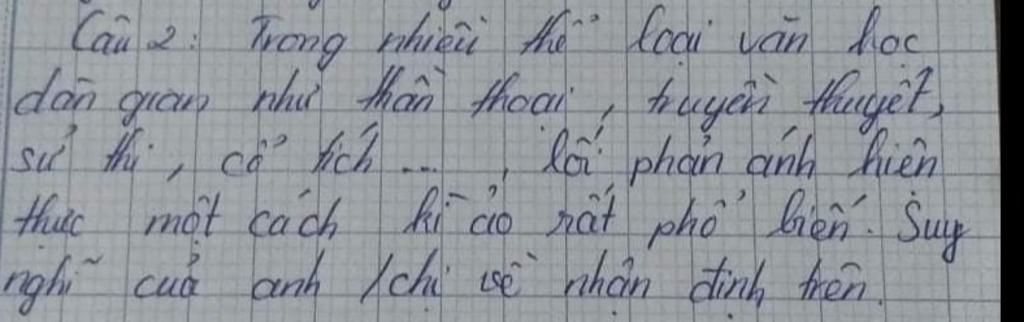 Câu 2: Trong nhiều thể loại văn học
dân gian như thần thoại, truyền thuyết,
sử thi, cổ tích ..., lối phản ánh hiện
thực một cách kì ảo rất phổ biến. Suy
nghĩ của anh /chị về nhận định trên.